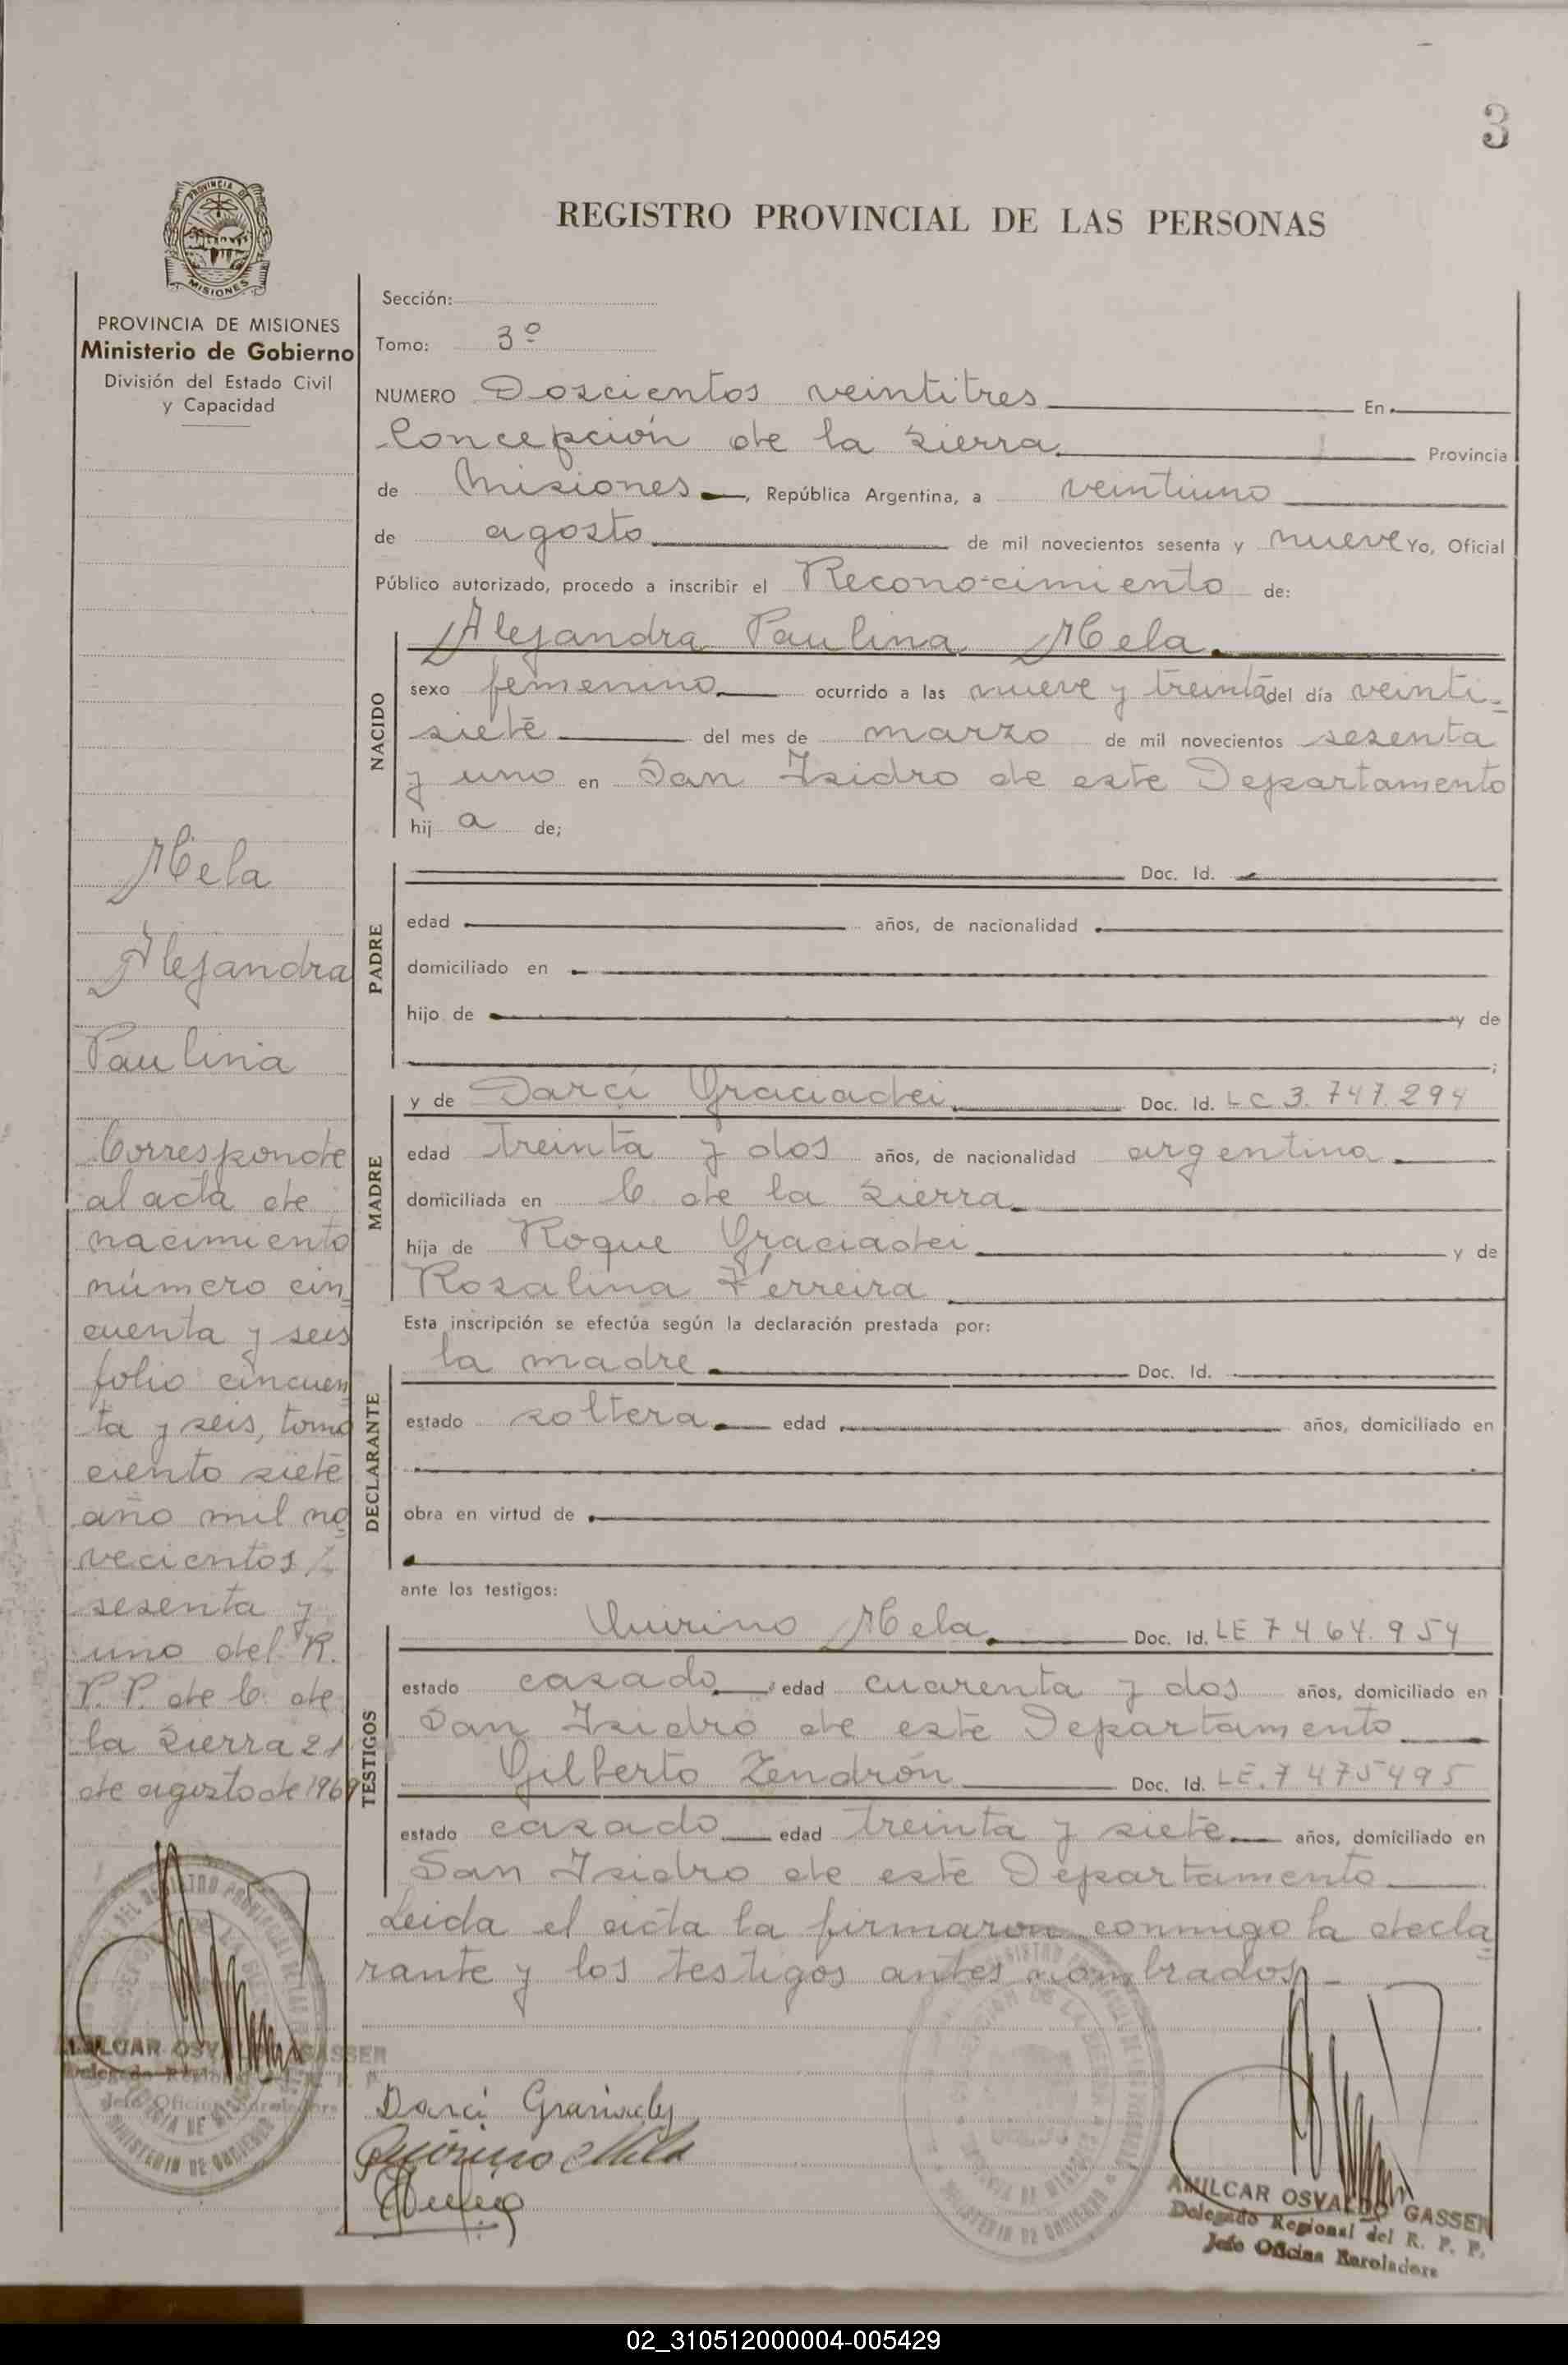 3
REGISTRO PROVINCIAL DE LAS PERSONAS
PROVINCIA DE
MISIONES
PROVINCIA DE MISIONES
Ministerio de Gobierno
División del Estado Civil
y Capacidad
Mela
Alejandra
Paulina
Corresponde
al acta de
nacimiento
número cin
cuenta y seis
folio cincuen
ta y seis, tomo
ciento siete
año mil no
vecientos
sesenta y
uno del R.
P. P. de C. de
la Sierra 21
de agosto de 1969
AMILCAR OSVALDO GASSER
Delegado Regional del R. P. P.
Jefe Oficina Enroladora
Sección:
Tomo: 3º
NUMERO Doscientos veintitres En
Concepción de la Sierra Provincia
de Misiones, República Argentina, a veintiuno
de agosto de mil novecientos sesenta y nueve Yo, Oficial
Público autorizado, procedo a inscribir el Reconocimiento de:
NACIDO
Alejandra Paulina Mela
sexo femenino ocurrido a las nueve y treinta del día veinti-
siete del mes de marzo de mil novecientos sesenta
y uno en San Isidro de este Departamento
hij a de;
PADRE
Doc. Id.
edad años, de nacionalidad
domiciliado en
hijo de y de
;
MADRE
y de Darci Graciadei Doc. Id. LC 3.747.294
edad treinta y dos años, de nacionalidad argentina
domiciliada en C de la Sierra
hija de Roque Graciadei y de
Rosalina Ferreira
Esta inscripción se efectúa según la declaración prestada por:
DECLARANTE
la madre Doc. Id.
estado soltera edad años, domiciliado en
obra en virtud de
ante los testigos:
TESTIGOS
Quirino Mela Doc. Id. LE 7464.954
estado casado edad cuarenta y dos años, domiciliado en
San Isidro de este Departamento
Gilberto Zendrón Doc. Id. LE.7475495
estado casado edad treinta y siete años, domiciliado en
San Isidro de este Departamento
Leida el acta la firmaron conmigo la decla
rante y los testigos antes nombrados
Darci
Quirino Mela
AMILCAR OSVALDO GASSER
Delegado Regional del R. P. P.
Jefe Oficina Enroladora
02_310512000004-005429